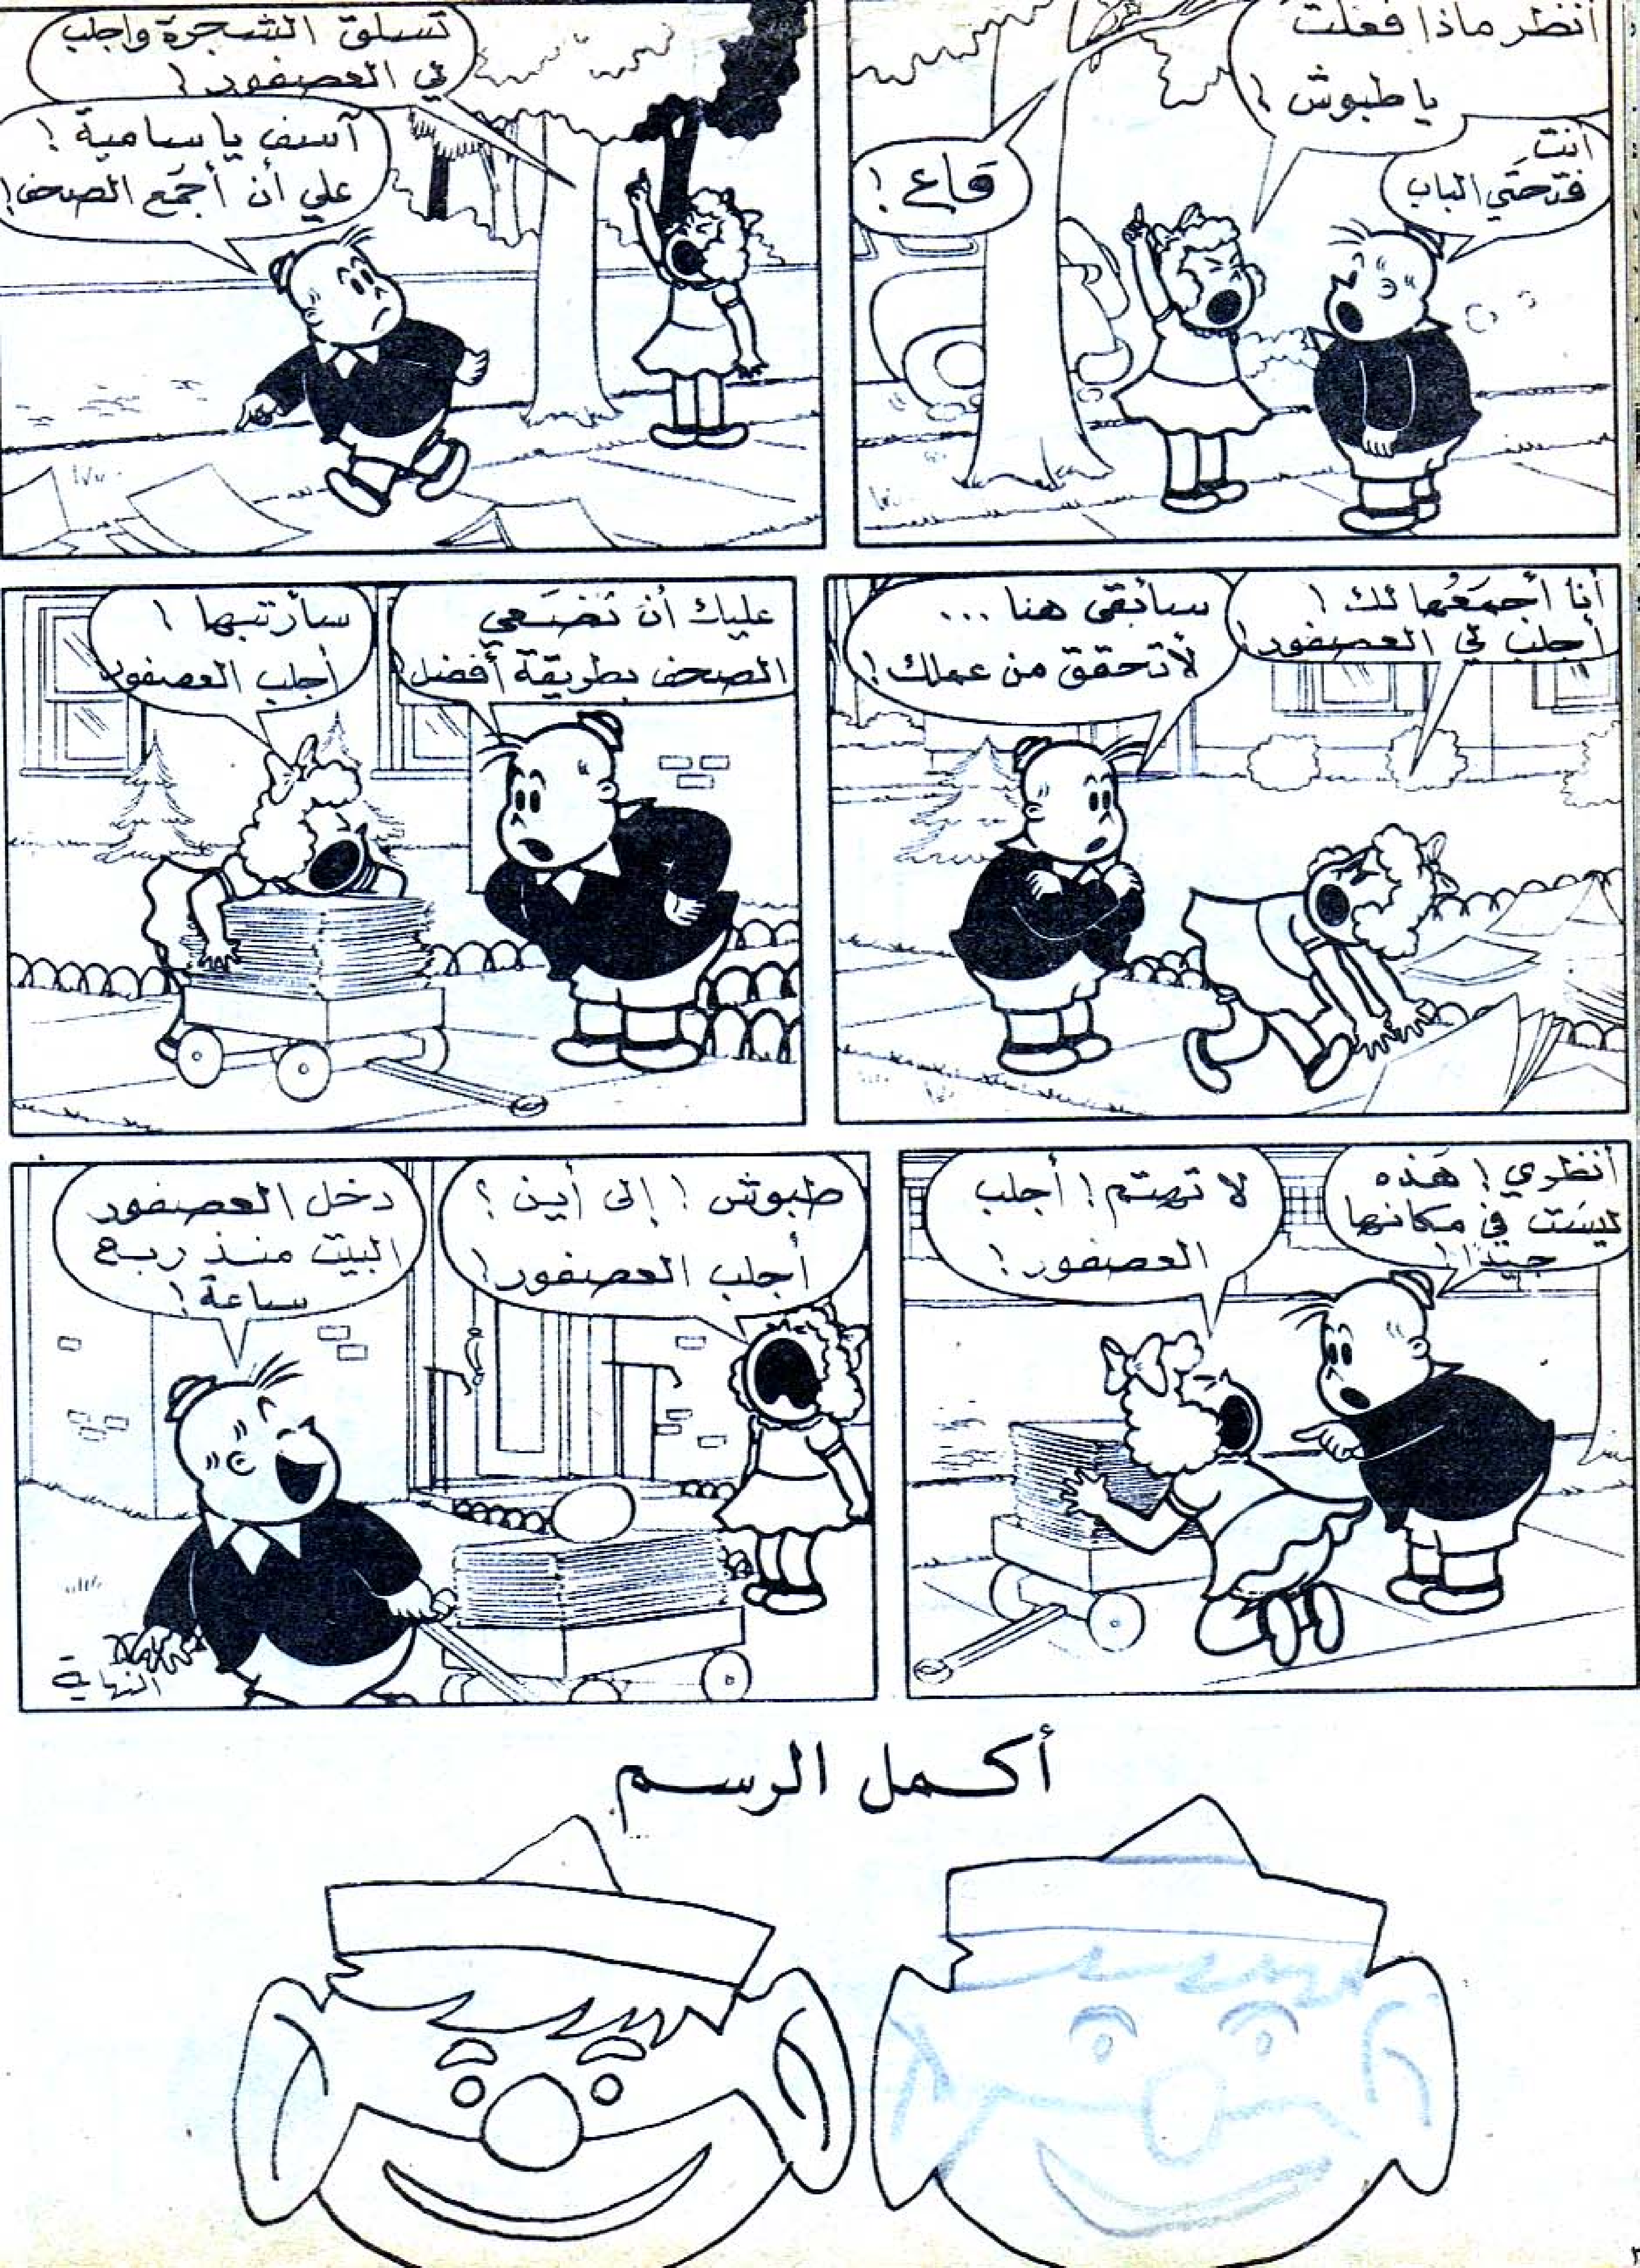 أنظر ماذا فعلت
يا طبوش!
أنت
فتحتي الباب
قاع!
تسلق الشجرة واجلب
لي العصفور!
آسف يا سامية!
علي أن أجمَع الصحف!
أنا أجمَعُها لك!
أجلب لي العصفور!
سأبقى هنا ...
لأتحقق من عملك!
عليك أن تضَعي
الصحف بطريقة أفضل!
سأرتبها!
أجلب العصفور
أنظري! هَذه
ليسَت في مكانها
جيّدًا!
لا تهتم! أجلب
العصفور!
طبوش! إلى أين؟
أجلب العصفور!
دخل العصفور
البيت منذ ربع
ساعة!
النهاية
أكمل الرسم